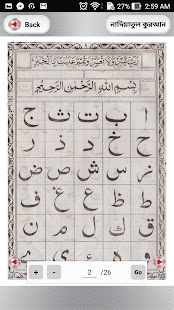 2:59 AM
Back
নাদিয়াতুল কুরআন
رَبِّ يَسِّرْ وَلَا تُعَسِّرْ وَتَمِّمْ عَلَيْنَا بِالْخَيْرِ
بِسْمِ اللّٰهِ الرَّحْمٰنِ الرَّحِيْمِ
ا ب ت ث ج
ح خ د ذ ر
ز س ش ص ض
ط ظ ع غ ف
ق ك ل م ن
و ه ء ى
+ - 2 /26 Go